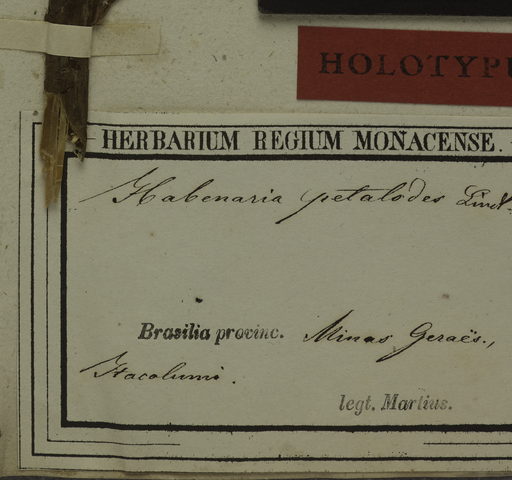 HOLOTYPU
HERBARIUM REGIUM MONACENSE.
Habenaria petalodes Lindl.
Brasilia provinc. Minas Geraës.,
Itacolumi.
legt. Martius.